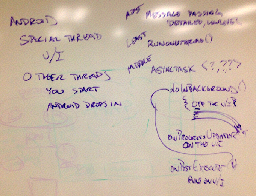 ANDROID
SPECIAL THREAD
U/I
OTHER THREADS
YOU START
ANDROID DROPS IN
MESSAGE PASSING,
RUNONUITHREAD()
MIDDLE ASYNCTASK <?,?,?>
DOINBACKGROUND()
ONPROGRESSUPDATE
ON THE UI
ONPOSTEXECUTE
RUN ON U/I